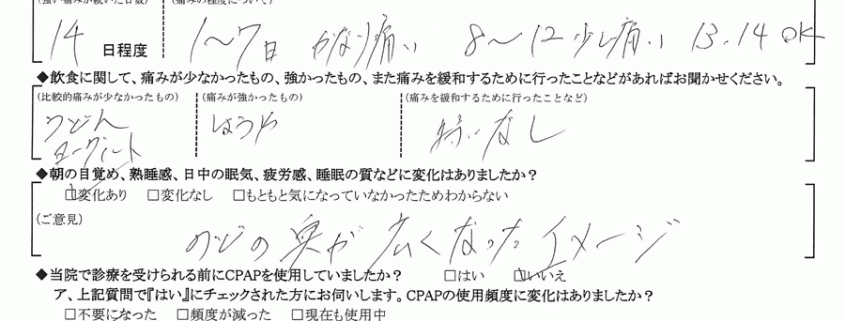 (強い痛みが続いた日数) (痛みの程度について)
14 日程度 1〜7日 かなり痛い 8〜12少し痛い 13.14 OK
◆飲食に関して、痛みが少なかったもの、強かったもの、また痛みを緩和するために行ったことなどがあればお聞かせください。
(比較的痛みが少なかったもの) (痛みが強かったもの) (痛みを緩和するために行ったことなど)
うどん しょうゆ 特になし
ヨーグルト
◆朝の目覚め、熟睡感、日中の眠気、疲労感、睡眠の質などに変化はありましたか？
☑変化あり □変化なし □もともと気になっていなかったためわからない
(ご意見)
のどの奥が広くなったイメージ
◆当院で診療を受けられる前にCPAPを使用していましたか？ □はい ☑いいえ
ア、上記質問で『はい』にチェックされた方にお伺いします。CPAPの使用頻度に変化はありましたか？
□不要になった □頻度が減った □現在も使用中